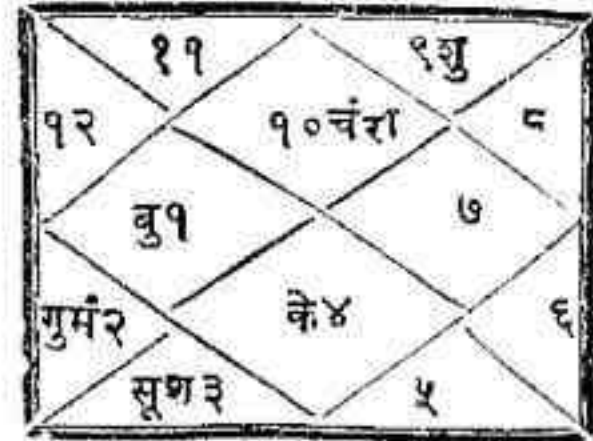 ११ ९शु
१२ १०चंरा ८
बु१ ७
गुमं२ के४ ६
सूश३ ५